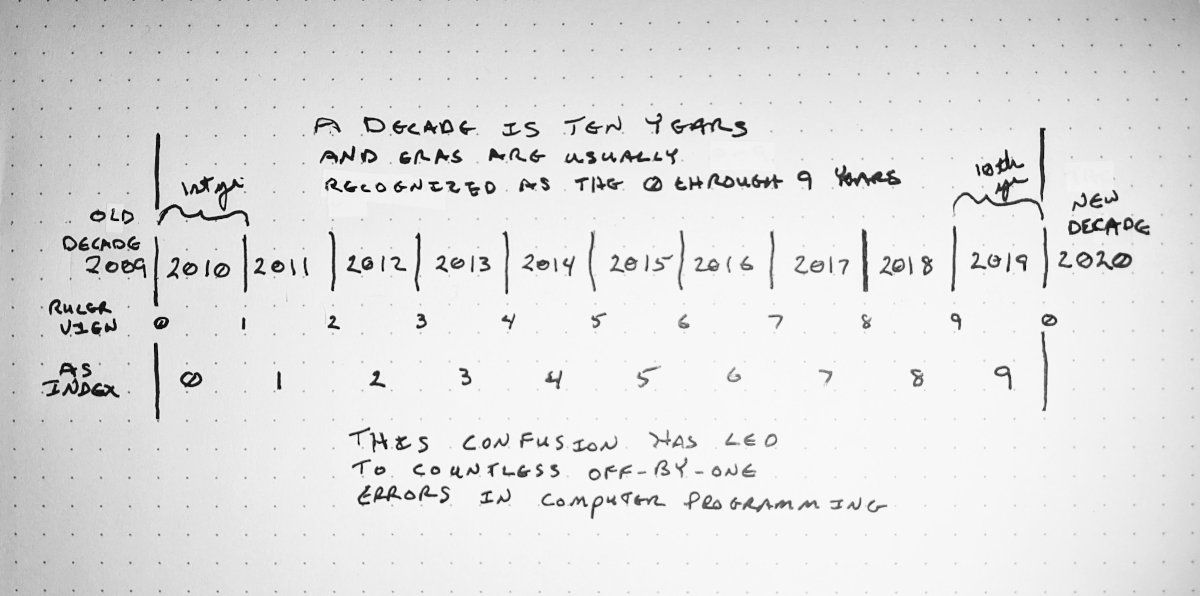 A DECADE IS TEN YEARS
AND ERAS ARE USUALLY
RECOGNIZED AS THE 0 THROUGH 9 YEARS
1st yr
10th yr
OLD DECADE
NEW DECADE
2009 2010 2011 2012 2013 2014 2015 2016 2017 2018 2019 2020
RULER VIEW 0 1 2 3 4 5 6 7 8 9 0
AS INDEX 0 1 2 3 4 5 6 7 8 9
THIS CONFUSION HAS LED
TO COUNTLESS OFF-BY-ONE
ERRORS IN COMPUTER PROGRAMMING